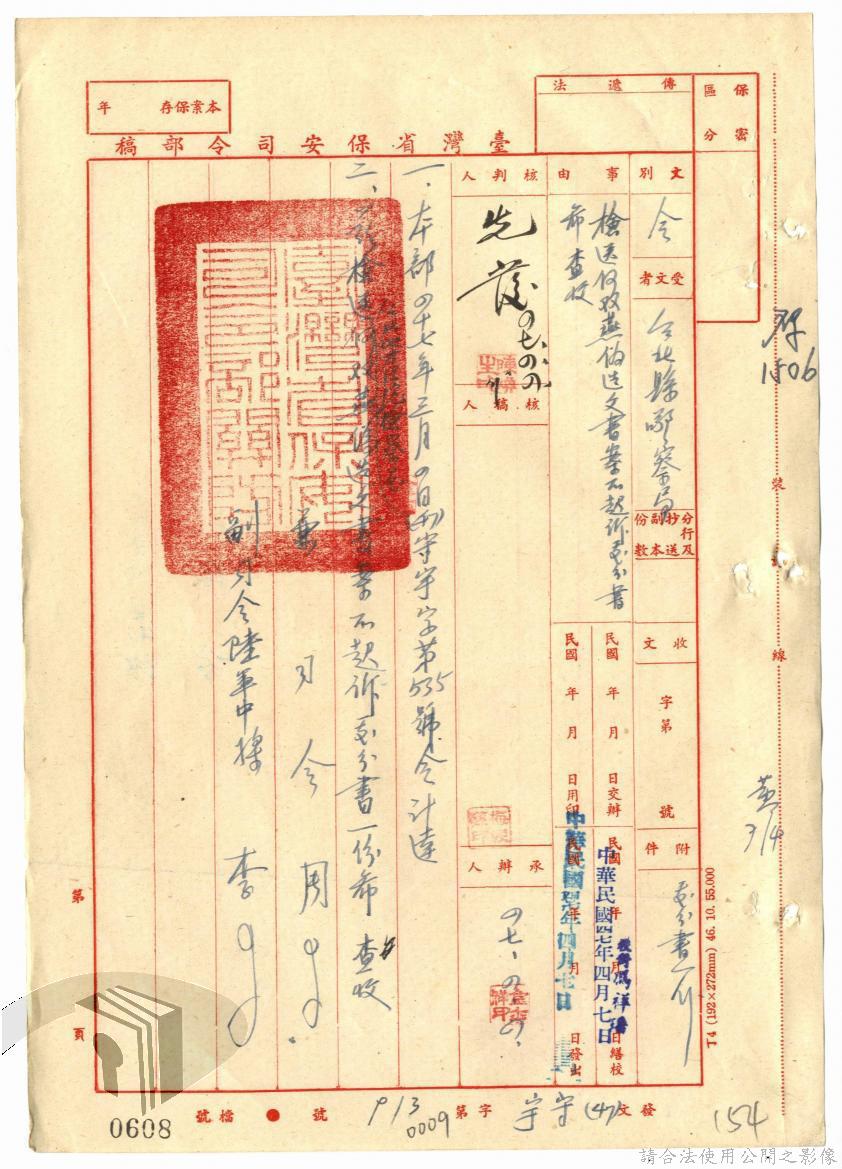 保密區分
傳遞法
本案保存 年
臺灣省保安司令部稿
文別 令
受文者 台北縣警察局
分行及抄送副本份數
收文 字第 號
附件 處分書一份
事由 檢送何双燕偽造文書案不起訴處分書
希查收
民國 年 月 日交辦
民國 年 月 日用印
中華民國四七年四月七日
核判人
先發
核稿人
承辦人
一、本部四十七年三月四日(47)守宇字第535號令計達
二、
檢送何双燕偽造文書案不起訴處分書一份希 查收
兼司令 周
副司令陸軍中將 李
裝
線
第 頁
T4 (192×272mm) 46. 10. 55,000
1506
3/4
154
發文(47)守宇字第0009號
913
檔號
0608
請合法使用公開之影像